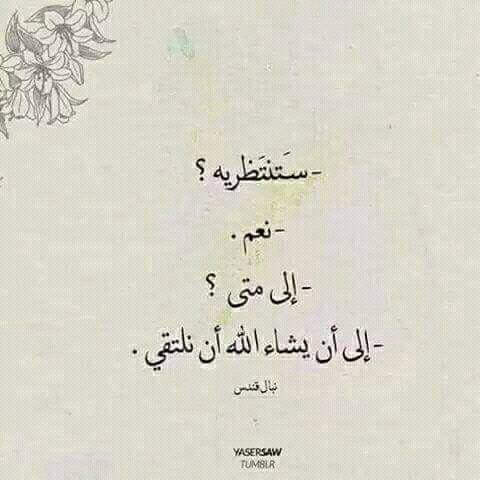 -سـتَنتَظريه ؟
-نعم .
-إلى متى ؟
-إلى أن يشاء الله أن نلتقي .
نبال قندس
YASERSAW
TUMBLR